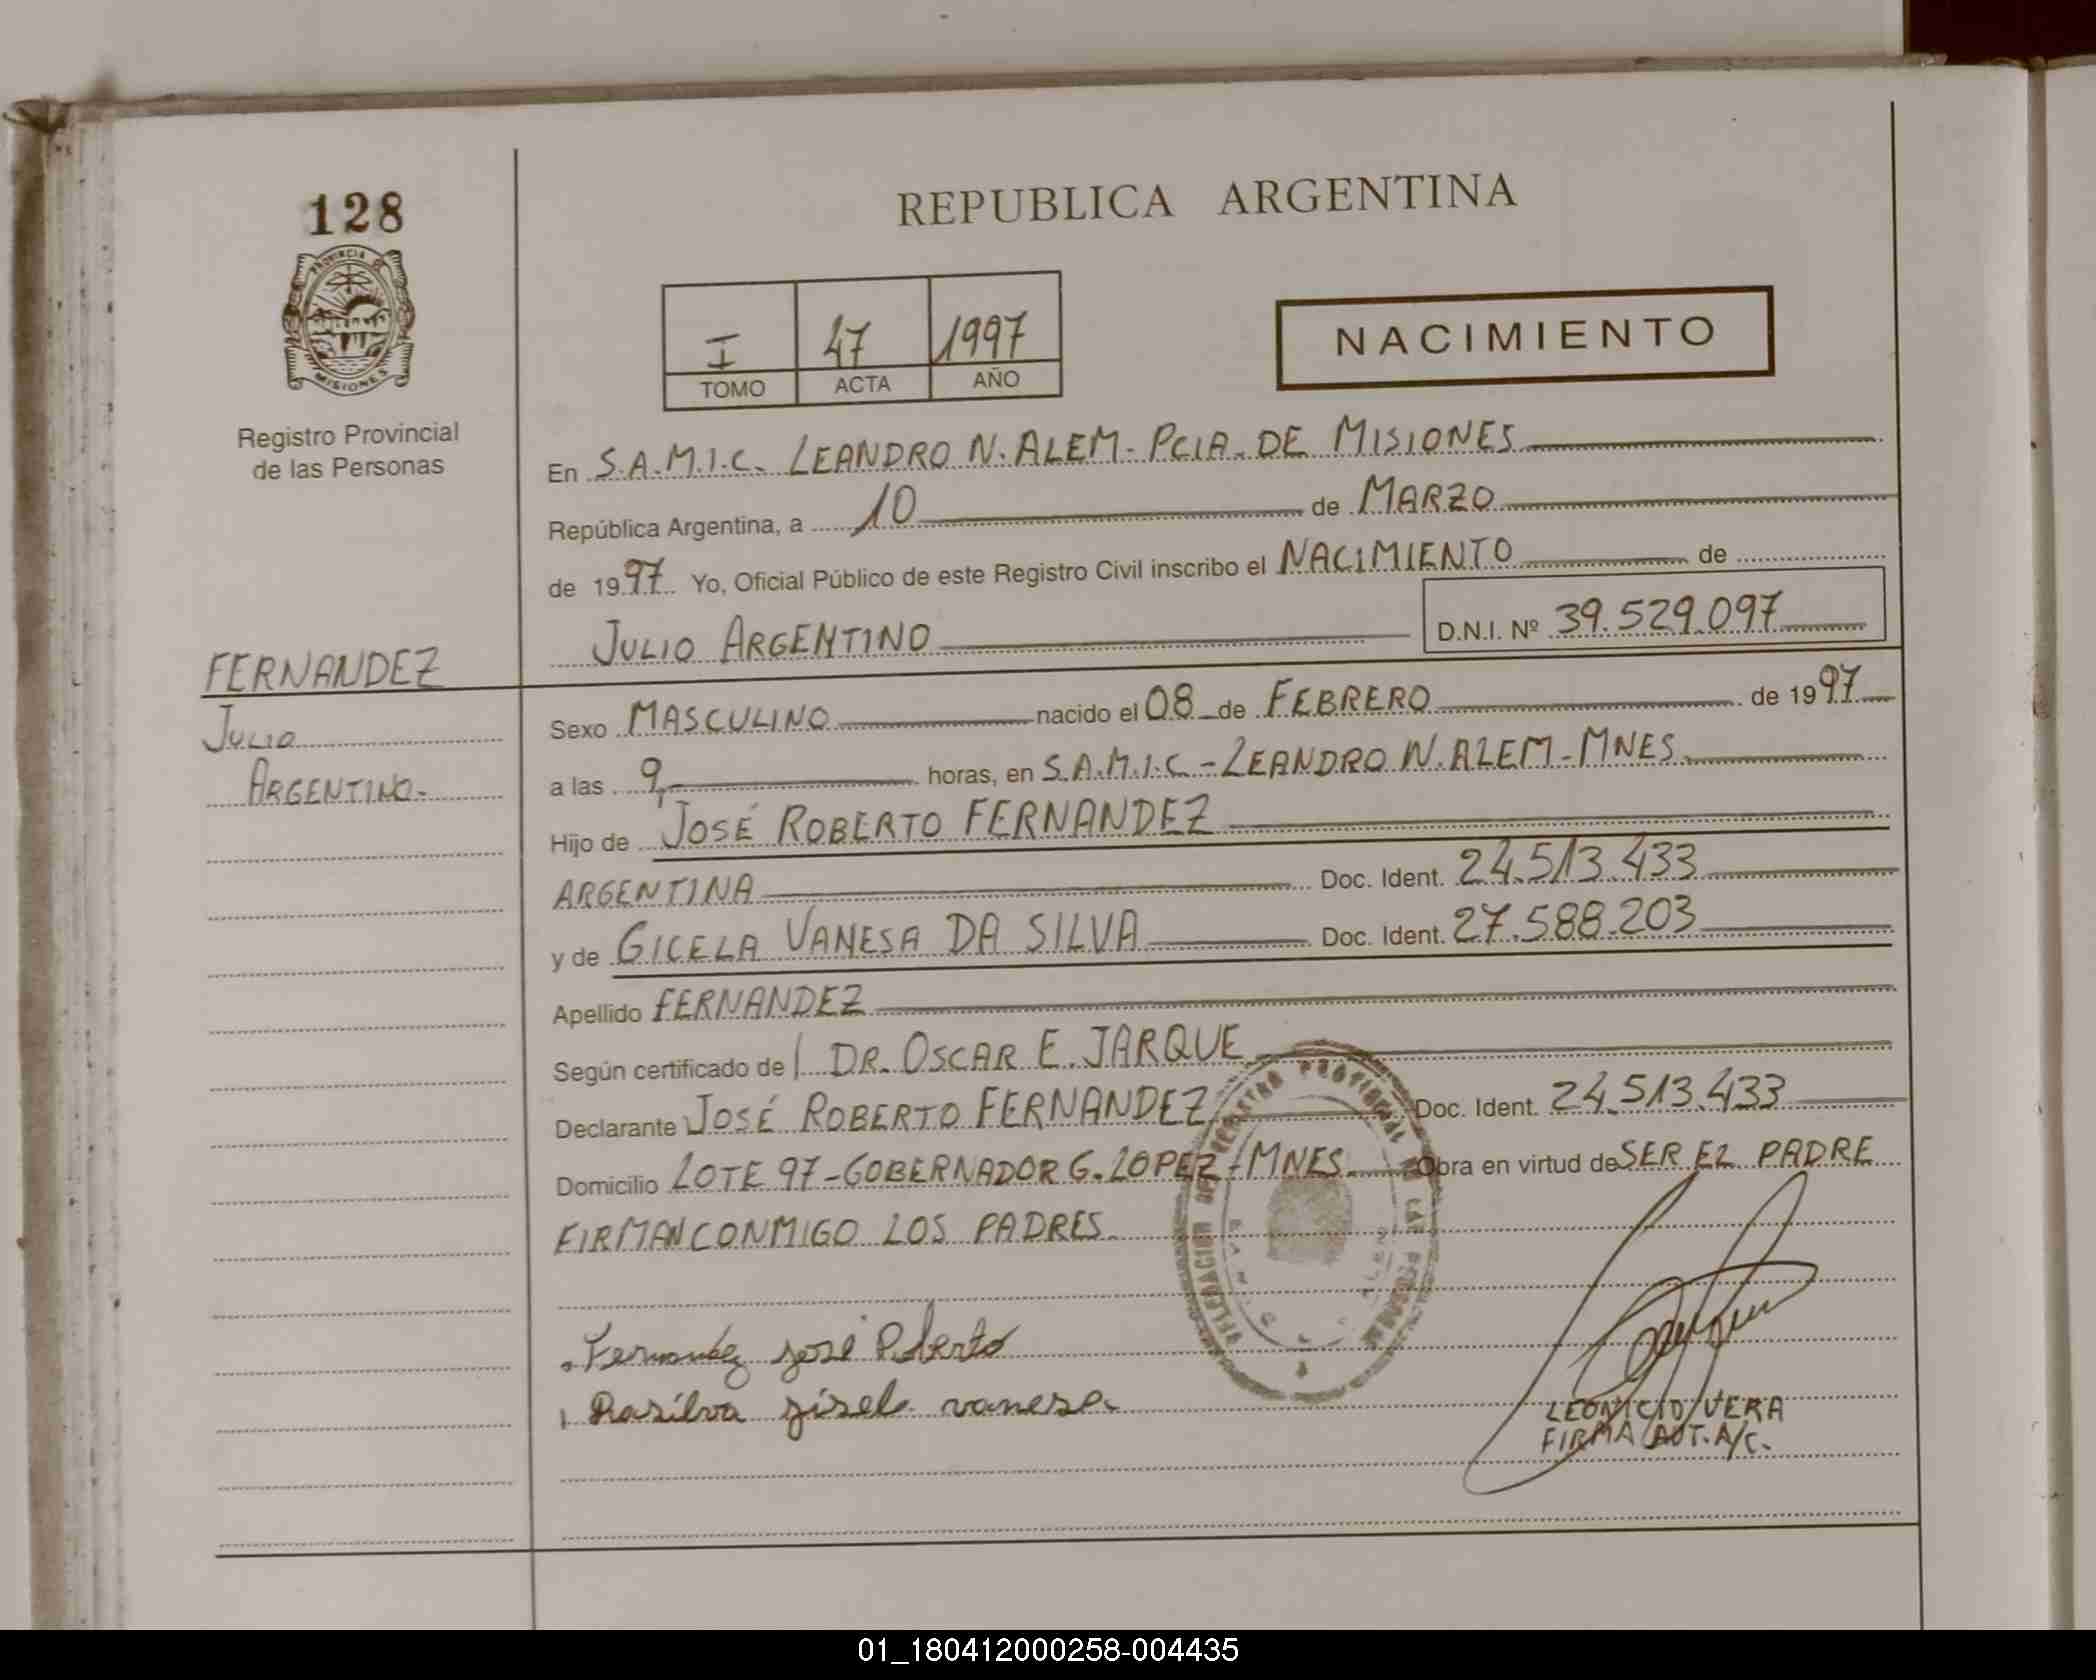 128
PROVINCIA DE
MISIONES
Registro Provincial
de las Personas
REPUBLICA ARGENTINA
I 47 1997
TOMO ACTA AÑO
NACIMIENTO
En S.A.M.I.C. LEANDRO N. ALEM - PCIA. DE MISIONES
República Argentina, a 10 de MARZO
de 1997 Yo, Oficial Público de este Registro Civil inscribo el NACIMIENTO de
JULIO ARGENTINO D.N.I. Nº 39.529.097
FERNANDEZ
JULIO
ARGENTINO.-
Sexo MASCULINO nacido el 08 de FEBRERO de 1997
a las 9, horas, en S.A.M.I.C - LEANDRO N. ALEM - MNES
Hijo de JOSÉ ROBERTO FERNANDEZ
ARGENTINA Doc. Ident. 24.513.433
y de GICELA VANESA DA SILVA Doc. Ident. 27.588.203
Apellido FERNANDEZ
Según certificado de DR. OSCAR E. JARQUE
Declarante JOSÉ ROBERTO FERNANDEZ Doc. Ident. 24.513.433
Domicilio LOTE 97 - GOBERNADOR G. LOPEZ - MNES. Obra en virtud de SER EL PADRE
FIRMAN CONMIGO LOS PADRES.
DELEGACION DEL REGISTRO PROVINCIAL DE LAS PERSONAS
Fernandez josé Roberto
Dasilva gisela vanesa
LEONICIO VERA
FIRMA AUT. A/C.
01_180412000258-004435